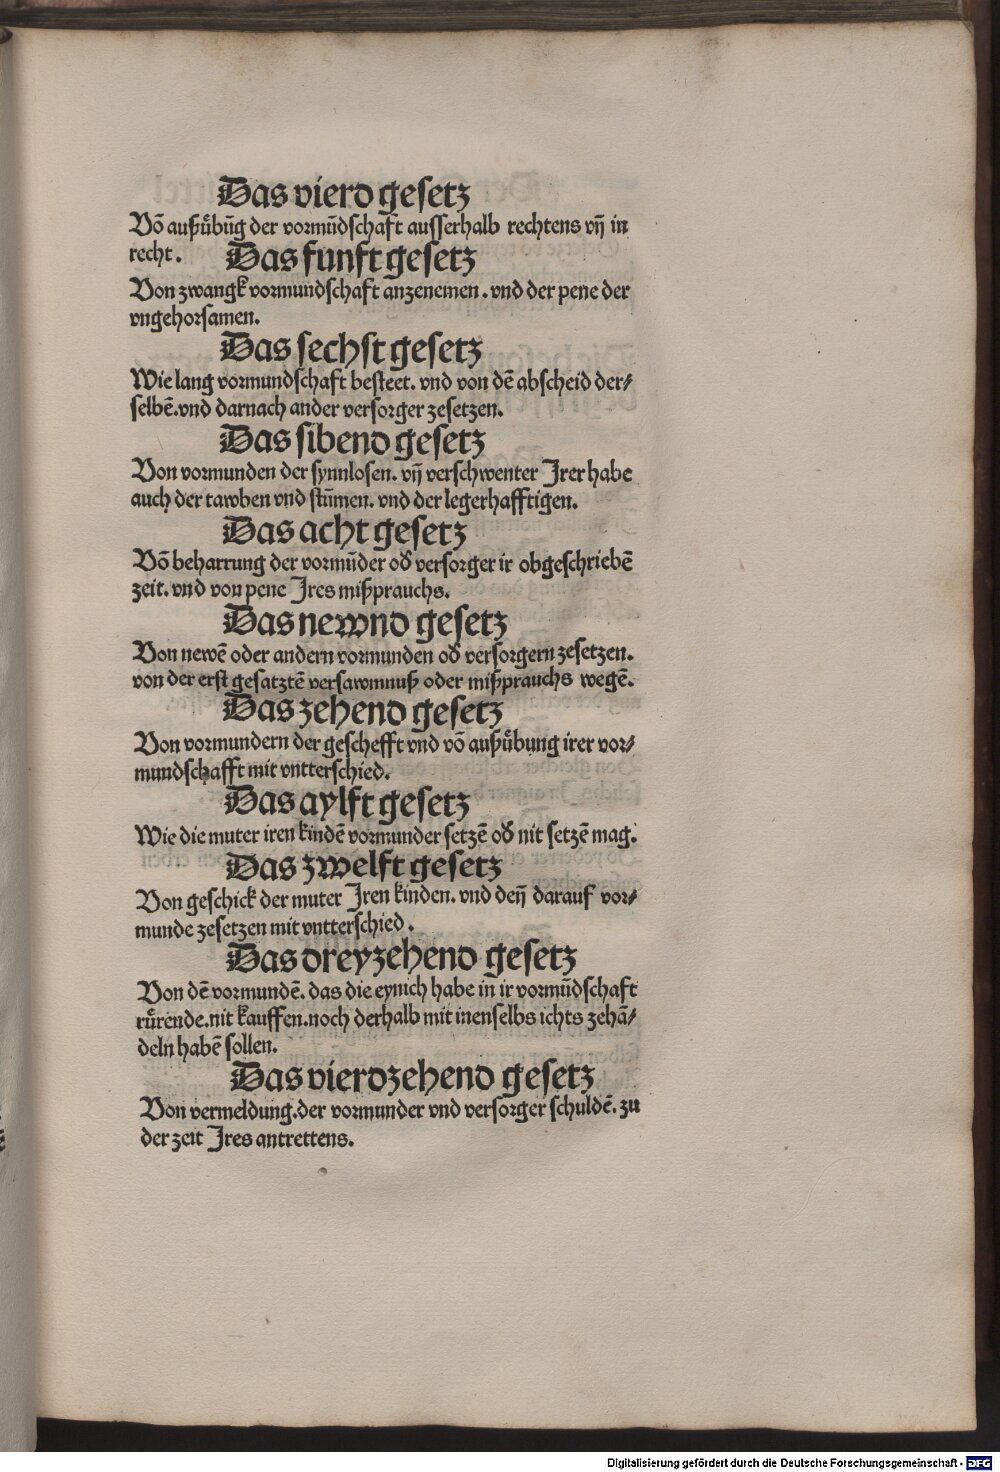 Das vierd gesetz
Võ außübũg der vormũdschaft ausserhalb rechtens vñ in
recht. Das funft gesetz
Von zwangk vormundschaft anzenemen. vnd der pene der
vngehorsamen.
Das sechst gesetz
Wie lang vormundschaft besteet. vnd von dẽ abscheid der⸗
selbẽ. vnd darnach ander versorger zesetzen.
Das sibend gesetz
Von vormunden der synnlosen. vñ verschwenter Irer habe
auch der tawben vnd stũmen. vnd der legerhafftigen.
Das acht gesetz
Võ beharrung der vormũder od versorger ir obgeschriebẽ
zeit. vnd von pene Ires mißprauchs.
Das newnd gesetz
Von newẽ oder andern vormunden od versorgern zesetzen.
von der erst gesatztẽ versawmnuß oder mißprauchs wegẽ.
Das zehend gesetz
Von vormundern der geschefft vnd võ außübung irer vor⸗
mundschafft mit vntterschied.
Das aylft gesetz
Wie die muter iren kindẽ vormunder setzẽ od nit setzẽ mag.
Das zwelft gesetz
Von geschick der muter Iren kinden. vnd deñ darauf vor⸗
munde zesetzen mit vntterschied.
Das dreyzehend gesetz
Von dẽ vormundẽ. das die eynich habe in ir vormũdschaft
rürende. nit kauffen. noch derhalb mit inenselbs ichts zehã⸗
deln habẽ sollen.
Das vierdzehend gesetz
Von vermeldung. der vormunder vnd versorger schuldẽ. zu
der zeit Ires antrettens.
Digitalisierung gefördert durch die Deutsche Forschungsgemeinschaft - DFG